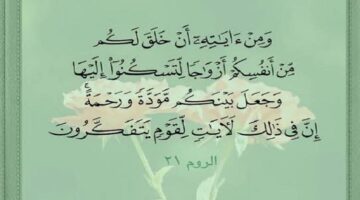 وَمِنْ ءَايَٰتِهِۦٓ أَنْ خَلَقَ لَكُم
مِّنْ أَنفُسِكُمْ أَزْوَٰجًا لِّتَسْكُنُوٓا۟ إِلَيْهَا
وَجَعَلَ بَيْنَكُم مَّوَدَّةً وَرَحْمَةً ۚ
إِنَّ فِى ذَٰلِكَ لَءَايَٰتٍ لِّقَوْمٍ يَتَفَكَّرُونَ
الروم ٢١